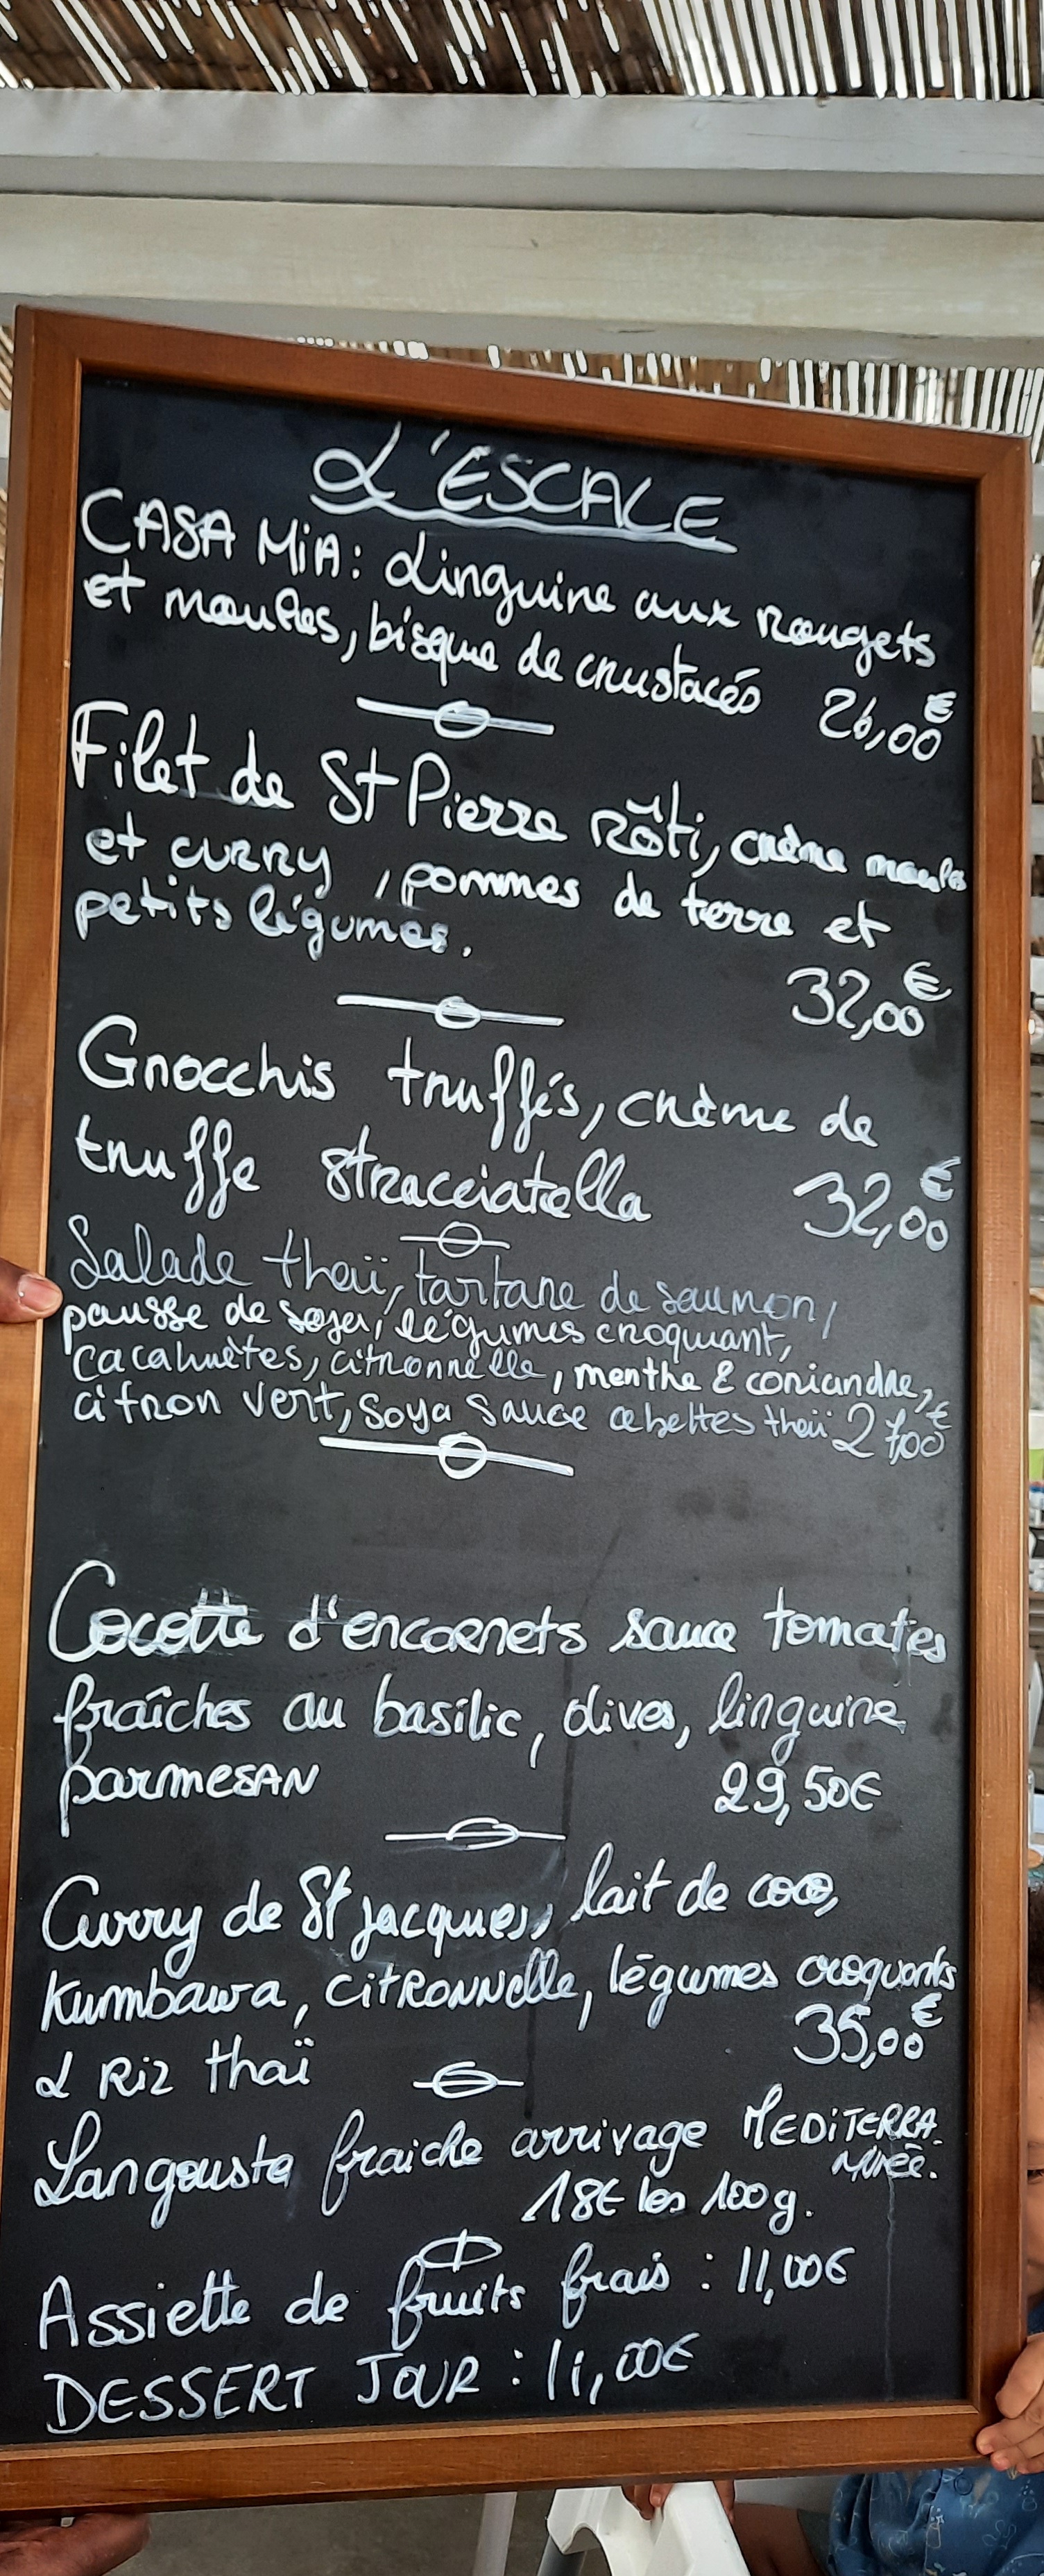 L'ESCALE
CASA MiA: Linguine aux Rougets
et moules, bisque de crustacés 26,00€
Filet de St Pierre Rôti, crème moules
et curry, pommes de terre et
petits légumes.
32,00€
Gnocchis truffés, crème de
truffe stracciatella 32,00€
Salade thaï, tartare de saumon,
pousse de soja, légumes croquant,
cacahuètes, citronnelle, menthe & coriandre,
citron vert, soya sauce cebettes thaï 27,00€
Cocotte d'encornets sauce tomates
fraîches au basilic, olives, linguine
parmesan 29,50€
Curry de St jacques, lait de coco,
Kumbawa, citronnelle, légumes croquants
35,00€
& Riz thaï
Langouste fraiche arrivage MEDiTERRA
18€ les 100g.
Assiette de fruits frais : 11,00€
DESSERT JOUR : 11,00€